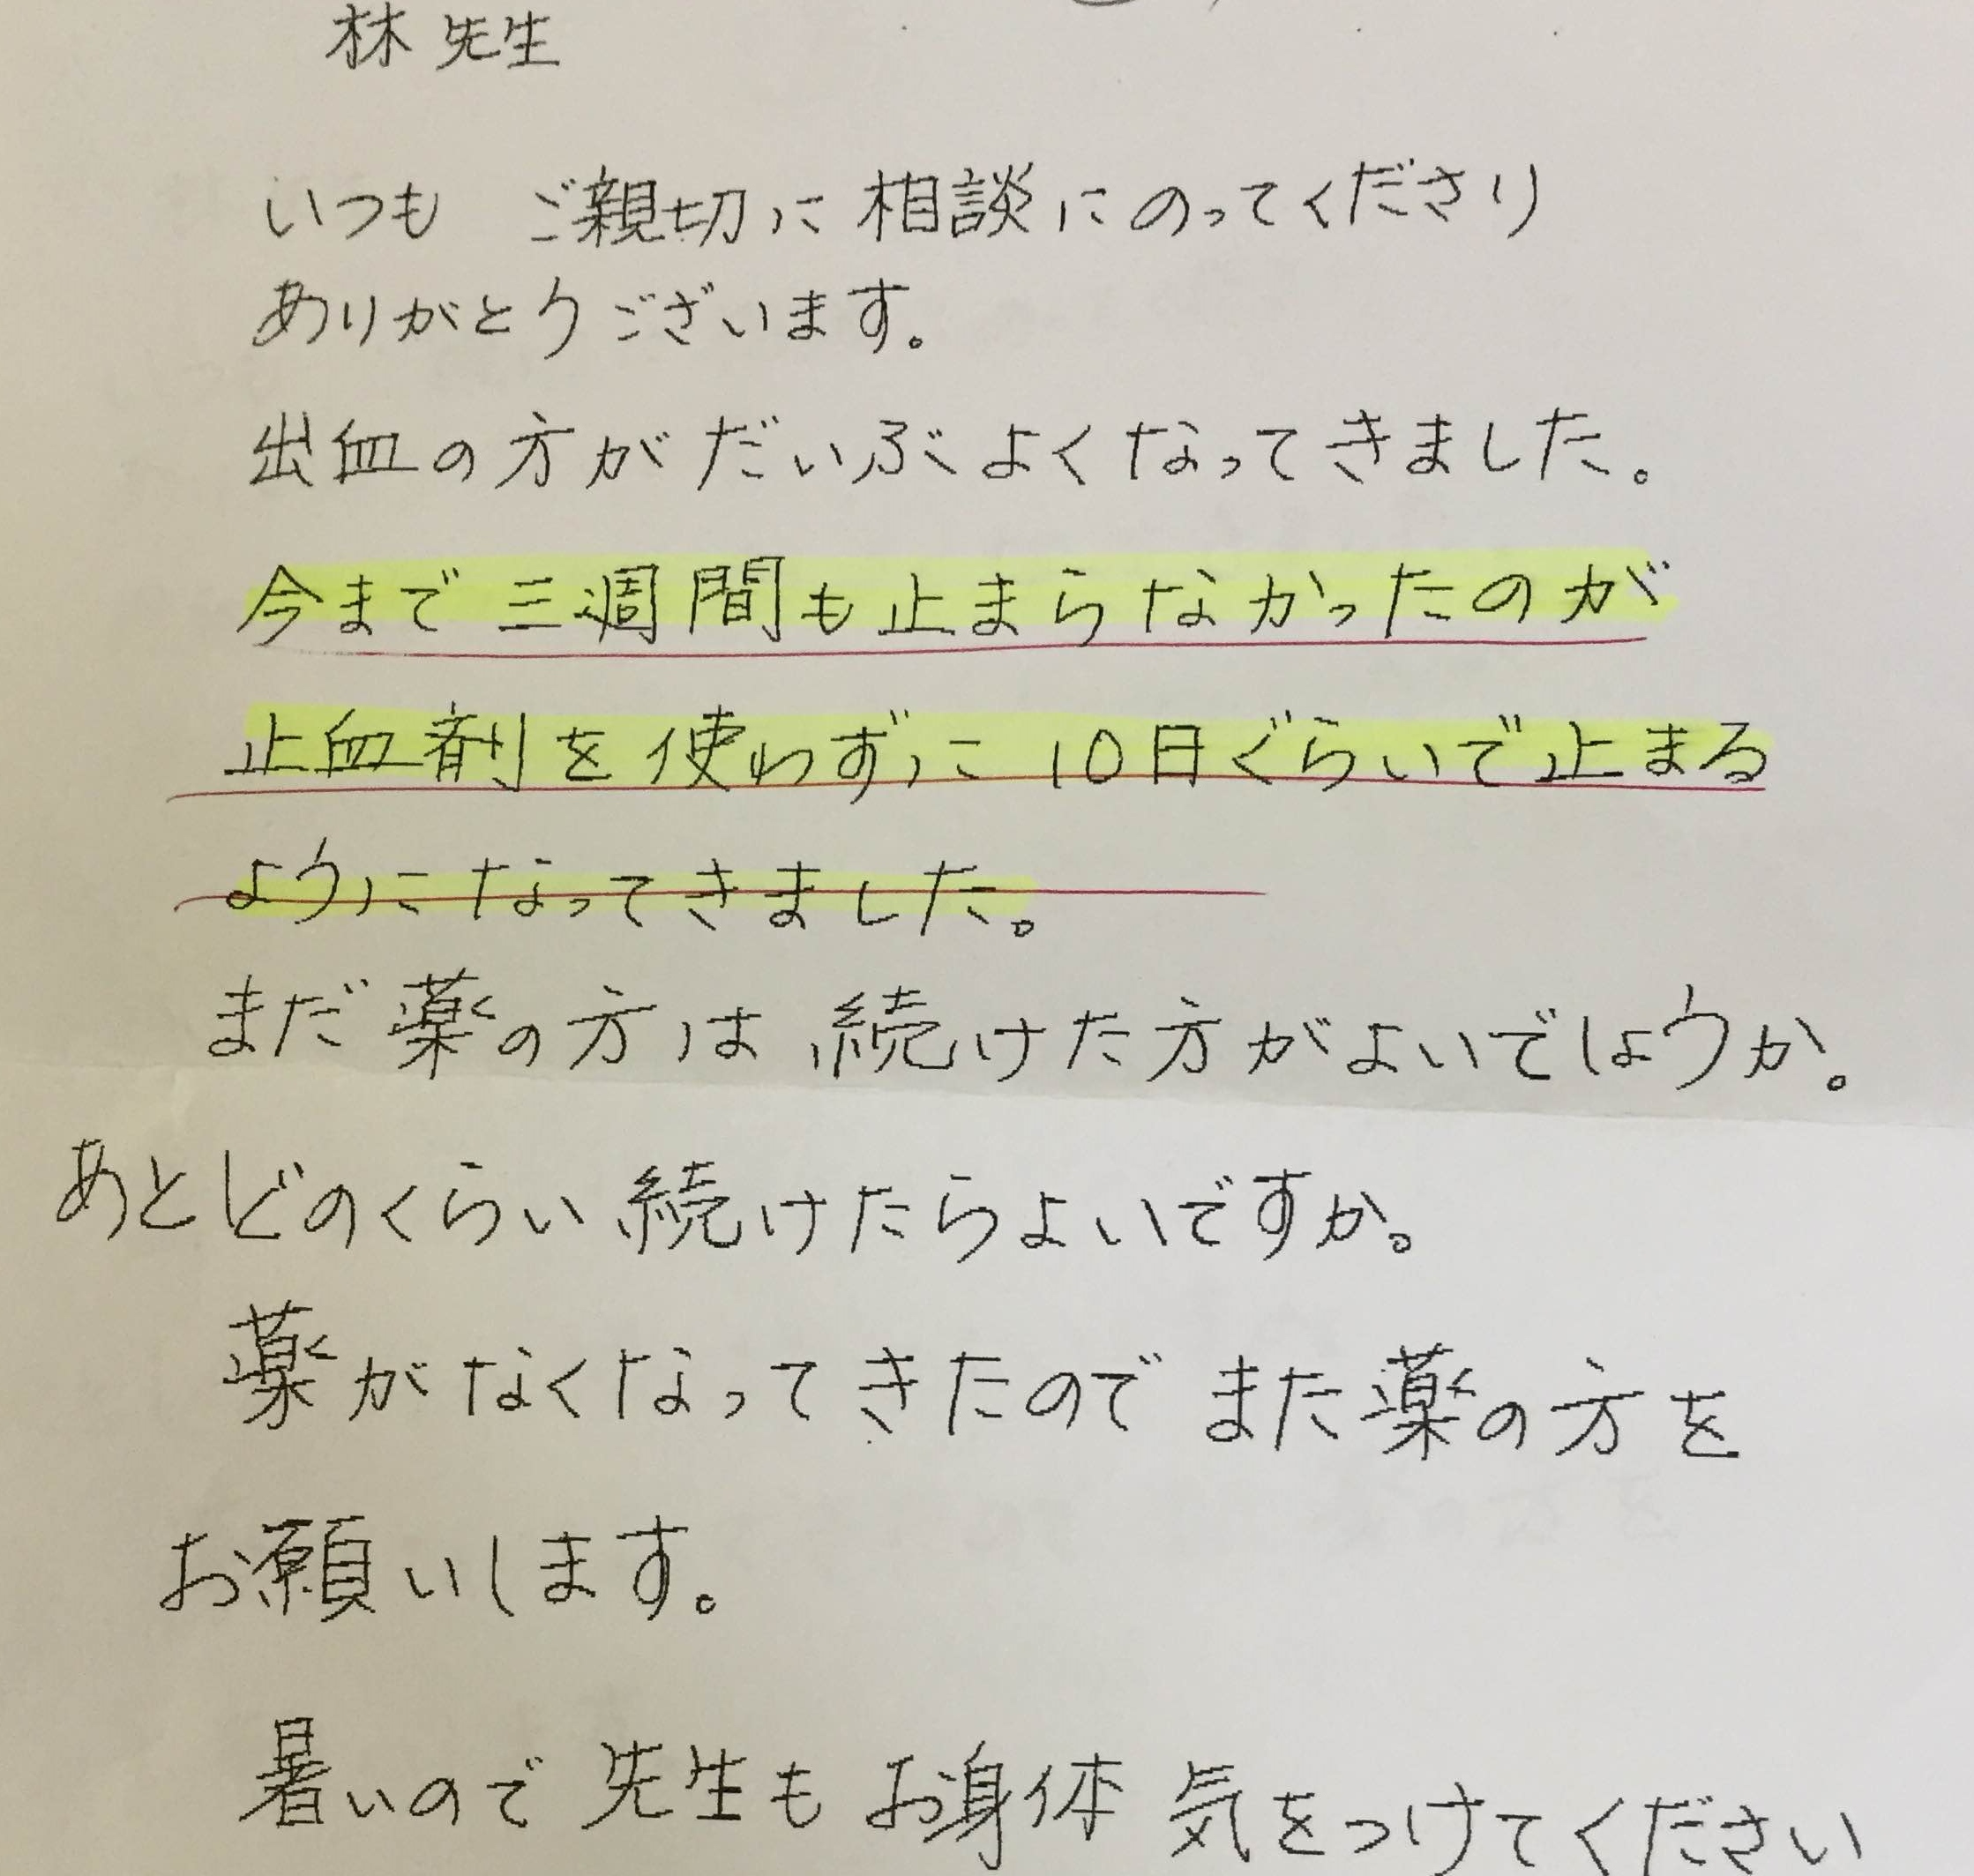 林先生
いつも ご親切に相談にのってくださり
ありがとうございます。
出血の方がだいぶよくなってきました。
今まで三週間も止まらなかったのが
止血剤を使わずに10日ぐらいで止まる
ようになってきました。
まだ薬の方は続けた方がよいでしょうか。
あとどのくらい続けたらよいですか。
薬がなくなってきたのでまた薬の方を
お願いします。
暑いので先生もお身体気をつけてください